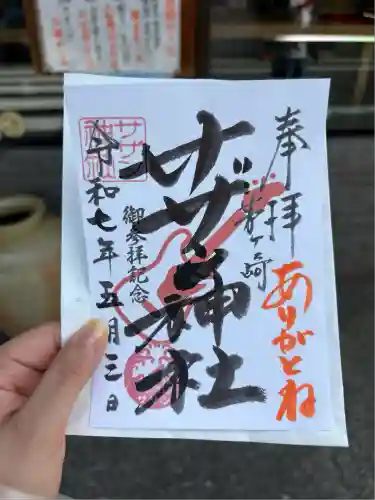 奉拝
茅ヶ崎
ありがとね
サザン神社
御参拝記念
サザン
神社
令和七年五月三日